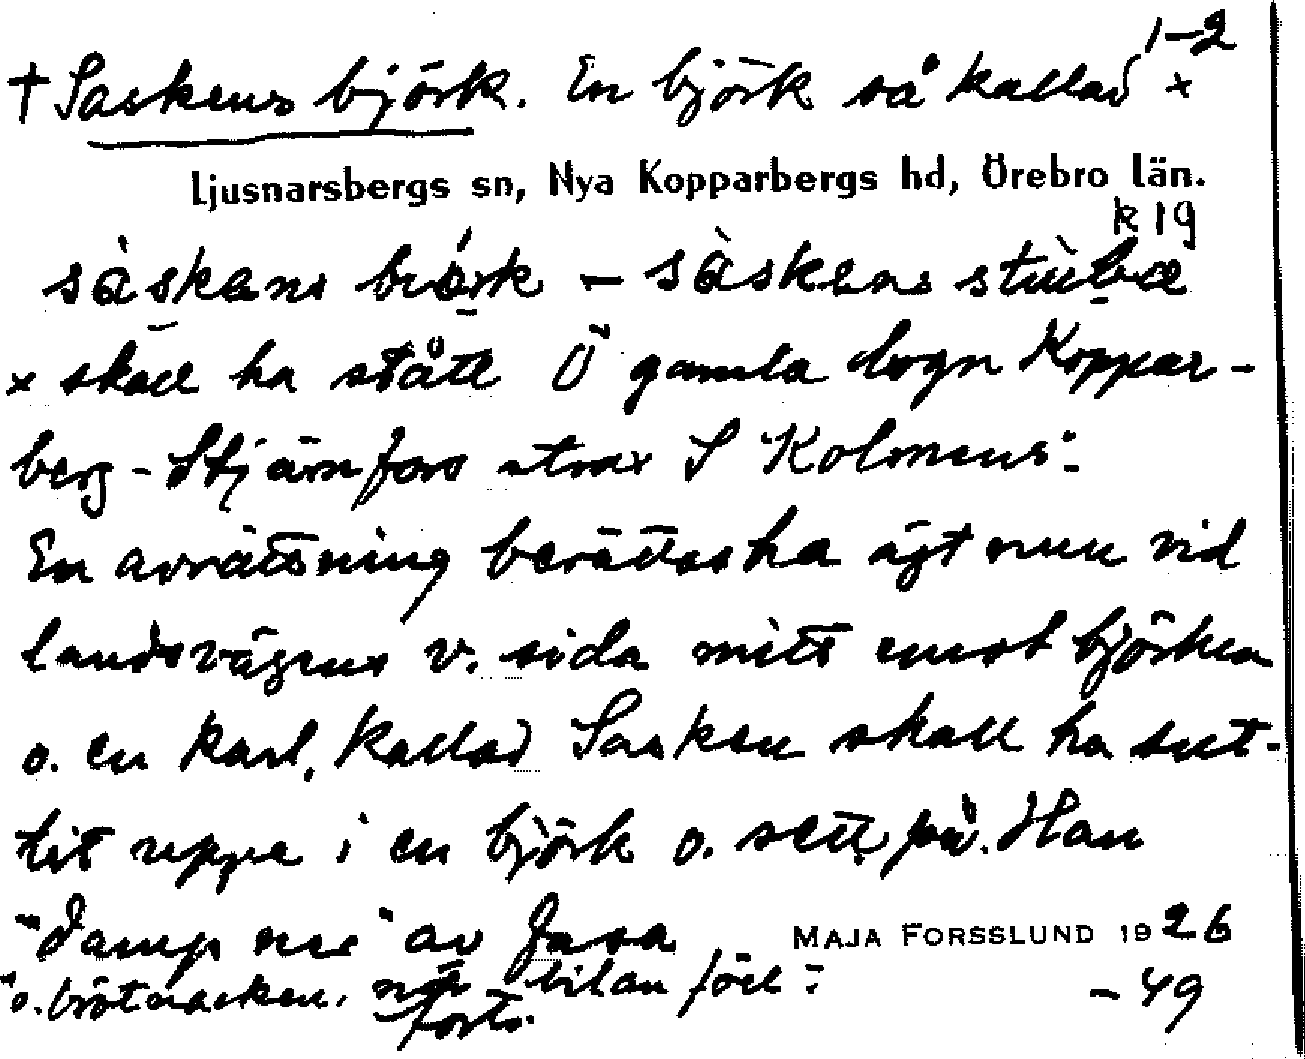 1-2
† Saskens björk. En björk så kallad x
Ljusnarsbergs sn, Nya Kopparbergs hd, Örebro län.
K 19
x skall ha stått Ö gamla vägen Koppar-
berg - Stjärnfors strax S Kolmens:
En avrättsning berättas ha ägt rum vid
landsvägens v. sida mitt emot björken
o. en karl, kallad Sasken skall ha sut-
tit uppe i en björk o. sett på. Han
"damp ner" av fasa
MAJA FORSSLUND 1926
"o. bröt nacken, när bilan föll:
forts.
-49